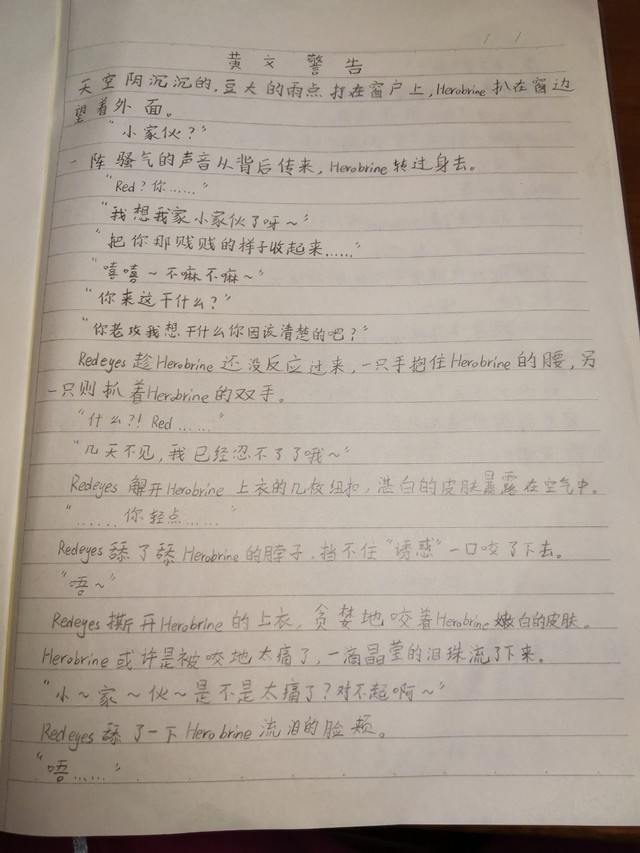 黄文警告
天空阴沉沉的，豆大的雨点打在窗户上，Herobrine 扒在窗边
望着外面。
“小家伙？”
一阵骚气的声音从背后传来，Herobrine 转过身去。
“Red？你……”
“我想我家小家伙了呀～”
“把你那贱贱的样子收起来……”
“嘻嘻～不嘛不嘛～”
“你来这干什么？”
“你老攻我想干什么你因该清楚的吧？”
Redeyes 趁 Herobrine 还没反应过来，一只手抱住 Herobrine 的腰，另
一只则抓着 Herobrine 的双手。
“什么？！Red……”
“几天不见，我已经忍不了了哦～”
Redeyes 解开 Herobrine 上衣的几枚纽扣，湛白的皮肤暴露在空气中。
“……你轻点……”
Redeyes 舔了舔 Herobrine 的脖子，挡不住“诱惑”一口咬了下去。
“唔～”
Redeyes 撕开 Herobrine 的上衣，贪婪地咬着 Herobrine 嫩白的皮肤。
Herobrine 或许是被咬地太痛了，一滴晶莹的泪珠流了下来。
“小～家～伙～是不是太痛了？对不起啊～”
Redeyes 舔了一下 Herobrine 流泪的脸颊。
“唔……”